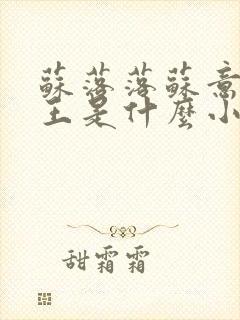 蘇落落蘇意
王是什麼小
甜霜霜